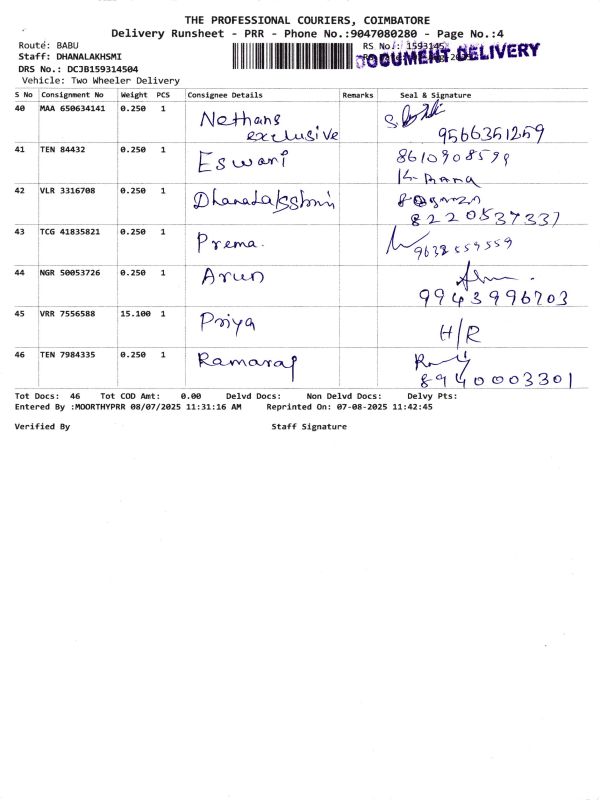 THE PROFESSIONAL COURIERS, COIMBATORE
Delivery Runsheet - PRR - Phone No.:9047080280 - Page No.:4
Route: BABU
RS No.: 1593145
Staff: DHANALAKHSMI
DOCUMENT DELIVERY
DRS No.: DCJB159314504
Vehicle: Two Wheeler Delivery
S No Consignment No Weight PCS Consignee Details Remarks Seal & Signature
40 MAA 650634141 0.250 1 Nethans
exclusive 9566351259
41 TEN 84432 0.250 1 Eswari 8610908599
42 VLR 3316708 0.250 1 Dhanalakshmi
8220537337
43 TCG 41835821 0.250 1 Prema. 9638559559
44 NGR 50053726 0.250 1 Arun
9943996703
45 VRR 7556588 15.100 1 Priya H/R
46 TEN 7984335 0.250 1 Ramaraj
8940003301
Tot Docs: 46 Tot COD Amt: 0.00 Delvd Docs: Non Delvd Docs: Delvy Pts:
Entered By :MOORTHYPRR 08/07/2025 11:31:16 AM Reprinted On: 07-08-2025 11:42:45
Verified By Staff Signature